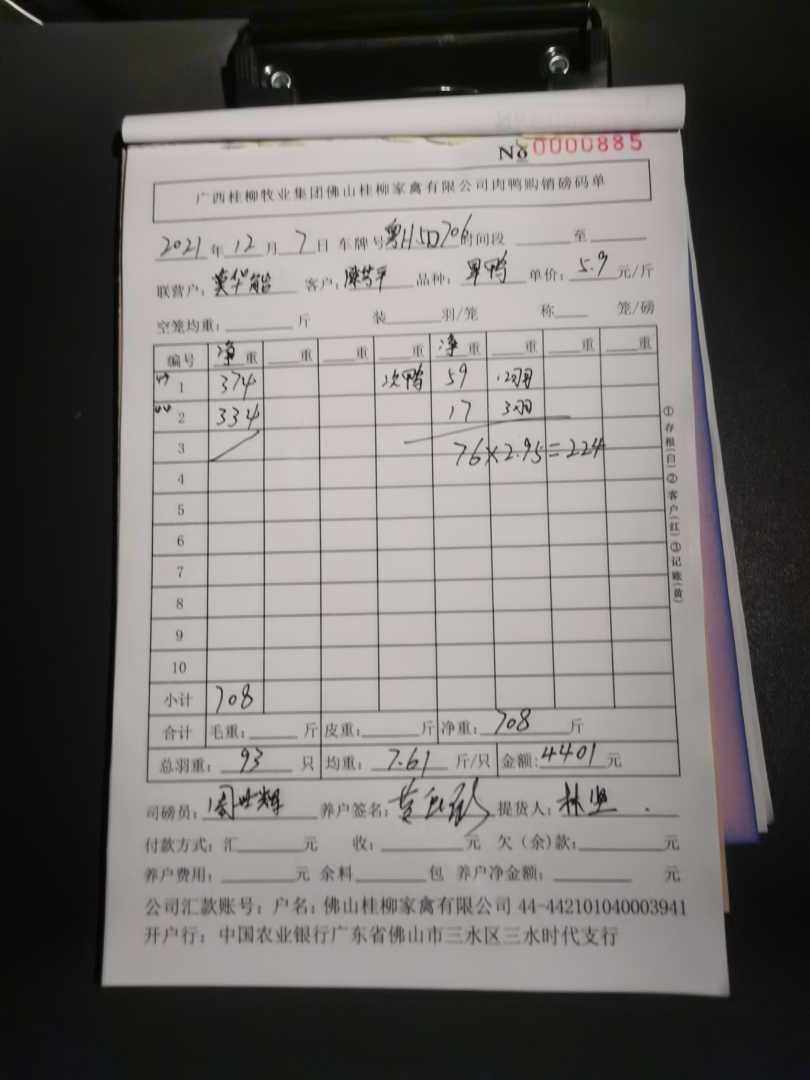 No 0000885
广西桂柳牧业集团佛山桂柳家禽有限公司肉鸭购销磅码单
2021年12月7日 车牌号粤H5D706时间段 至
联营户: 客户: 品种: 单鸭 单价: 5.9元/斤
空笼均重: 斤 装 羽/笼 称 笼/磅
编号 净重 重 重 重 净重 重 重 重
1 374 次鸭 59 12羽
2 334 17 3羽
3 76×2.95=224
4
5
6
7
8
9
10
小计 708
合计 毛重: 斤 皮重: 斤 净重: 708 斤
总羽重: 93 只 均重: 7.61 斤/只 金额: 4401元
司磅员: 周世辉 养户签名: 提货人: 林
付款方式: 汇 元 收: 元 欠(余)款: 元
养户费用: 元 余料 包 养户净金额: 元
公司汇款账号: 户名: 佛山桂柳家禽有限公司 44-442101040003941
开户行: 中国农业银行广东省佛山市三水区三水时代支行
①存根(白)②客户(红)③记账(黄)